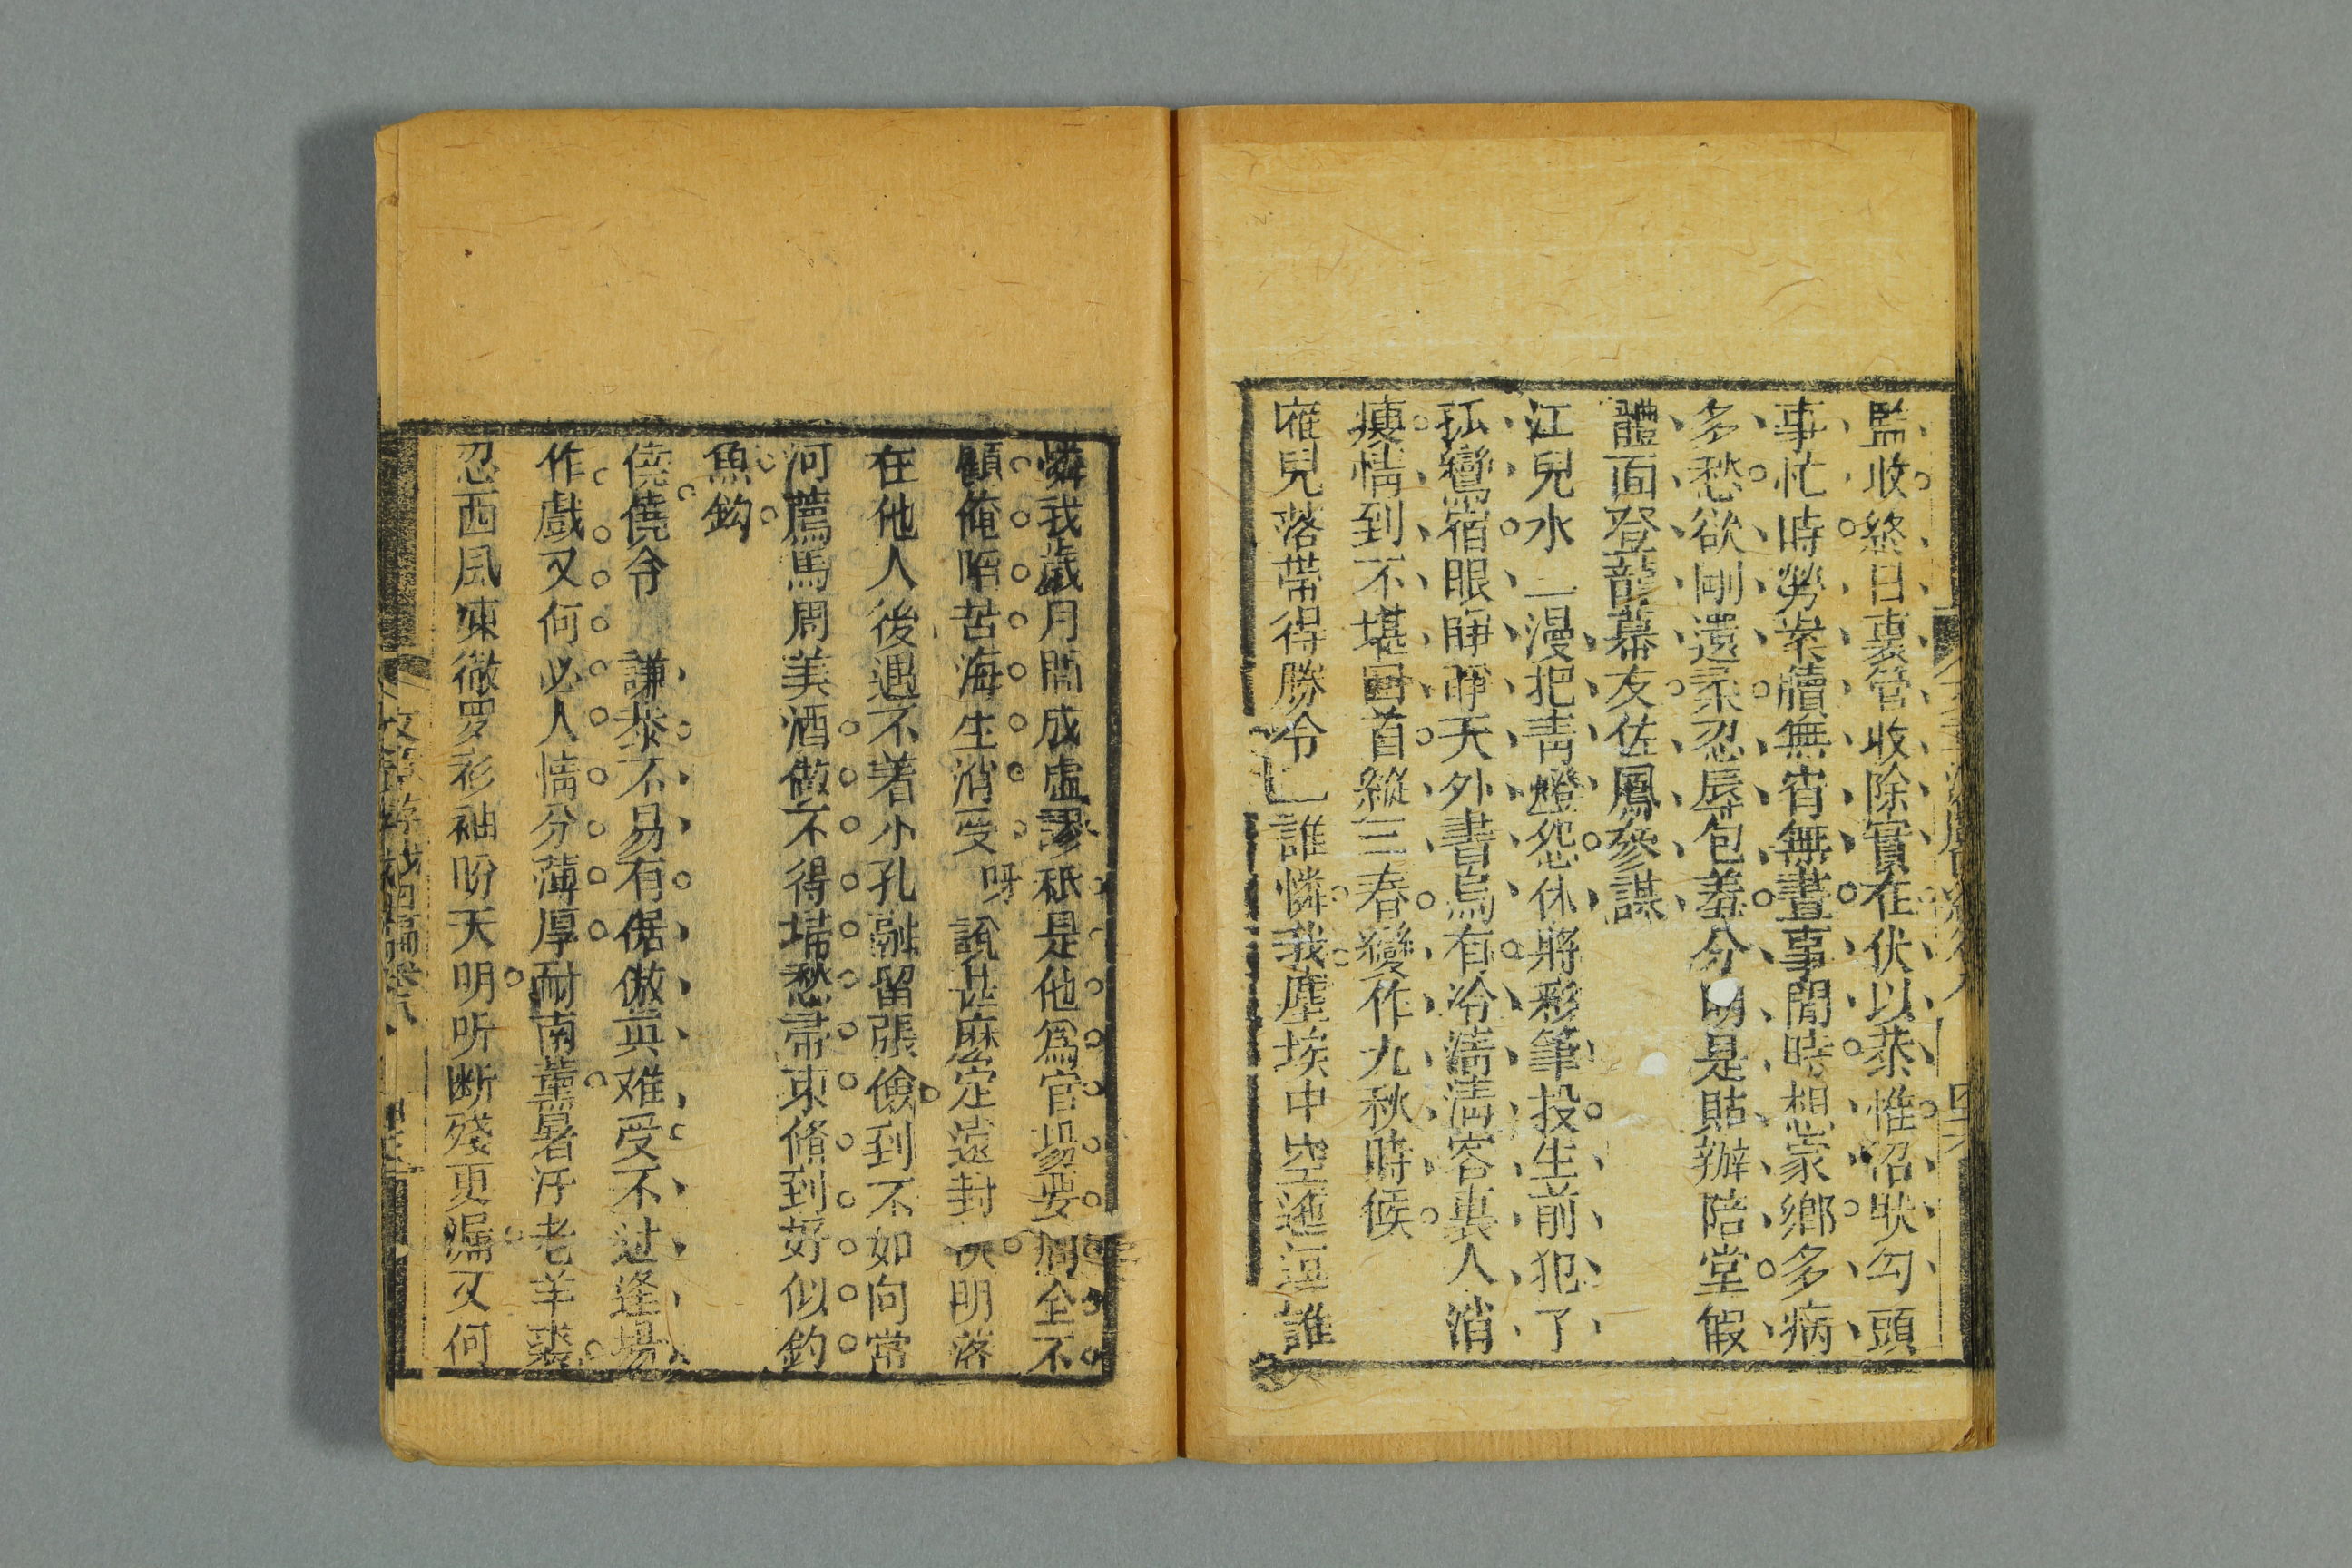 監收終日裏管收除實在伏以恭惟沼狀勾頭
事忙時勞案牘無宵無晝事閒時想家鄉多病
多愁欲剛還柔忍辱包羞分明是貼辦陪堂假
體面登龍幕友佐鳳參謀
江兒水 漫把靑燈怨休將彩筆投生前犯了
孤鸞宿眼睜睜天外書烏有冷淸淸容裏人消
瘦情到不堪囬首縱三春變作九秋時候
雁兒落帶得勝令 誰憐我塵埃中空迤逗誰
憐我歲月間成虛謬秪是他爲官場要周全不
顧俺陷苦海生消受 呀 說甚麽定遠封 明落
在他人後遇不着小孔融留張儉到不如向常
河薦馬周美酒做不得埽愁帚束脩到好似釣
魚鈎
僥僥令 謙恭不易有倨傲真难受不过逢場
作戲又何必人情分薄厚耐南薰暑汗老羊裘
忍西風凍微罗衫袖盼天明听断殘更漏又何